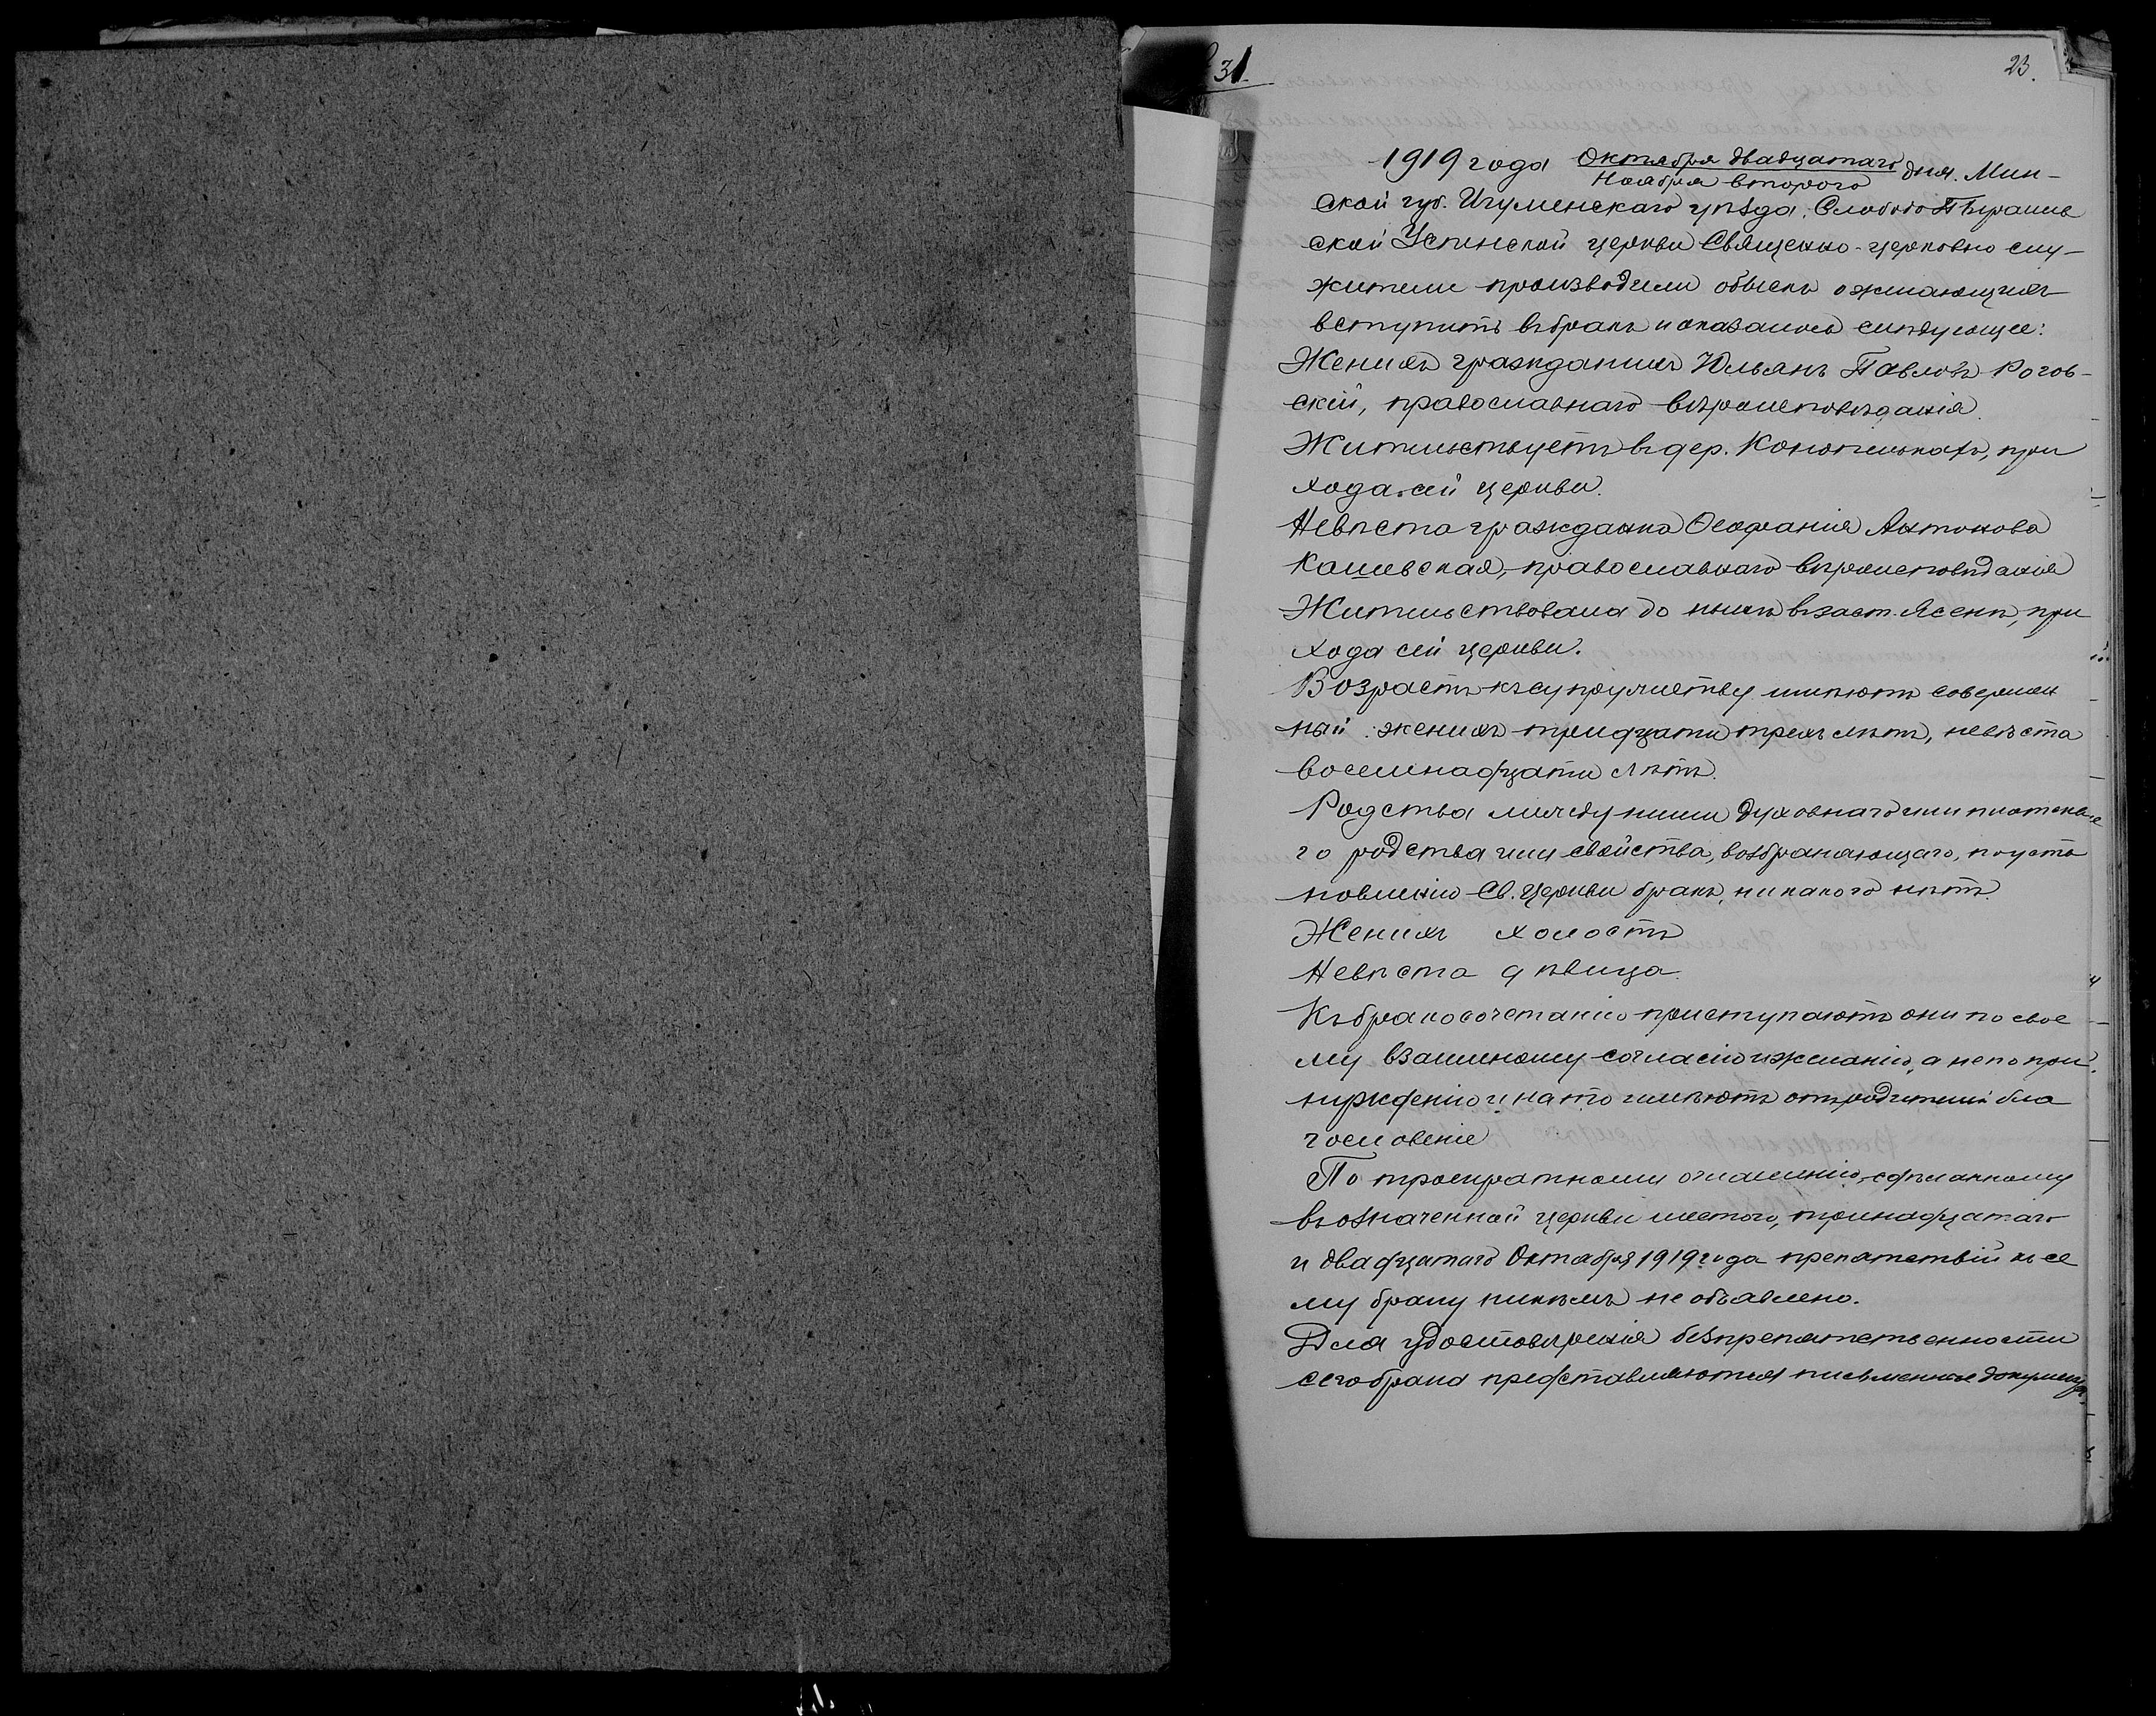 31.
23.
1919 года Октября двадцатаго дня. Мин-
Ноября второго
ской губ. Игуменскаго уѣзда, Слободо-Пырашев
ской Успенской церкви Священно-церковно слу-
жители производили обыскъ о желающихъ
вступить въ бракъ и оказалось слѣдующее:
Женихъ гражданинъ Юльянъ Павловъ Рогов-
скій, православнаго вѣроисповѣданія.
Жительствуетъ въ дер. Конопелькахъ, при
хода сей церкви.
Невѣста гражданка Стефанія Антонова
Кашевская, православнаго вѣроисповѣданія
Жительствовала до нынѣ въ заст. Ясенѣ, при
хода сей церкви.
Возрастъ къ супружеству имѣютъ совершен
ный: женихъ тридцати трехъ лѣтъ, невѣста
восемнадцати лѣтъ.
Родства между ними духовнаго или плотска
го родства или свойства, возбраняющаго, по уста
новленію Св. Церкви бракъ, никакого нѣтъ.
Женихъ холостъ
Невѣста дѣвица.
Къ бракосочетанію приступаютъ они по свое
му взаимному согласію и желанію, а не по при
нужденію и на то имѣютъ отъ родителей бла
гословеніе
По троекратному оглашенію, сдѣланному
въ означенной церкви шестого, тринадцатаго
и двадцатаго Октября 1919 года препятствій къ се
му браку никѣмъ не объявлено.
Для удостовѣренія безпрепятственности
сего брака представляются письменные документы